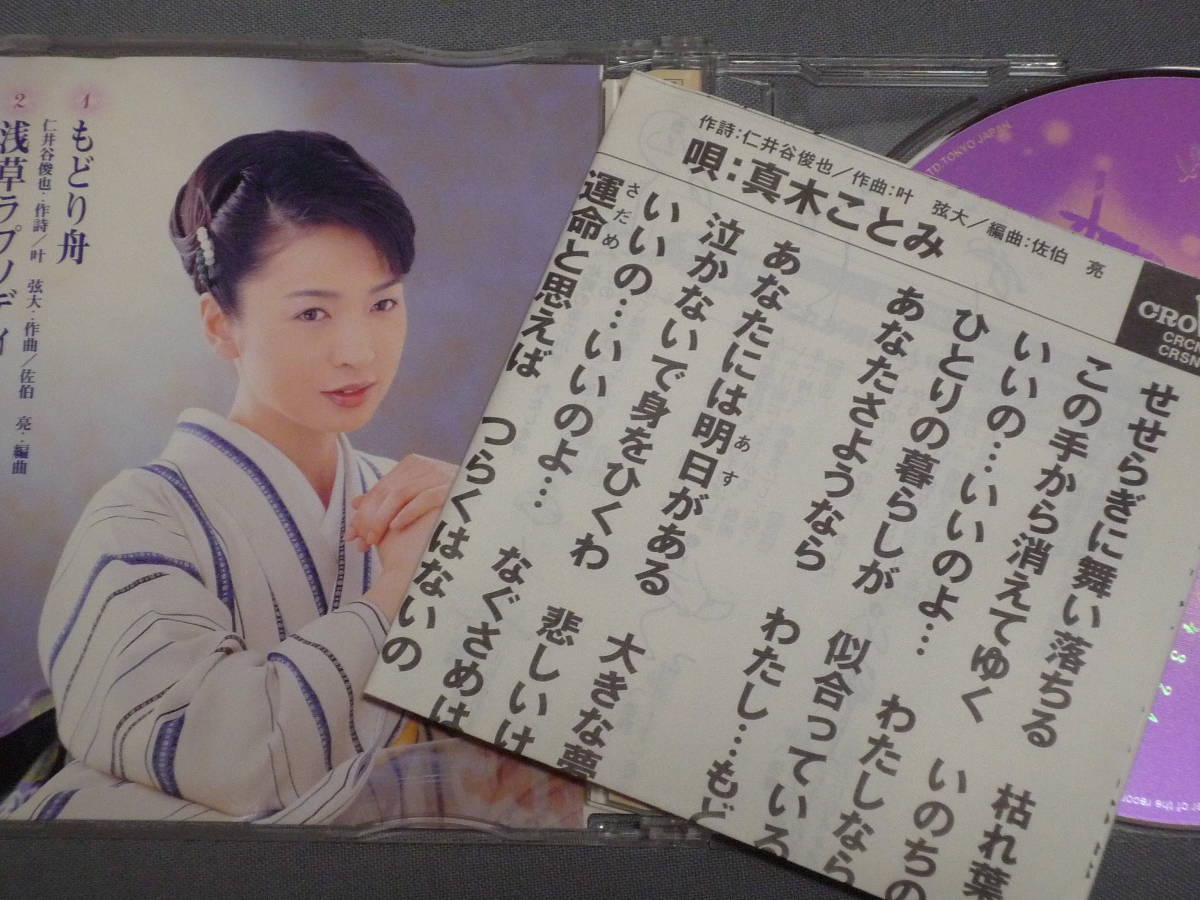 1 もどり舟
仁井谷俊也:作詩/叶 弦大:作曲/佐伯 亮:編曲
2 浅草ラプソディ
作詩:仁井谷俊也/作曲:叶 弦大/編曲:佐伯 亮
唄:真木ことみ
CRO
CRCN
CRSN
せせらぎに舞い落ちる 枯れ葉
この手から消えてゆく いのちの
いいの…いいのよ… わたしなら
ひとりの暮らしが 似合っている
あなたさようなら わたし…もど
あなたには明日がある 大きな夢
あす
泣かないで身をひくわ 悲しいけ
いいの…いいのよ… なぐさめは
運命と思えば つらくはないの
さだめ
TD.TOKYO JAPAN
of the recor